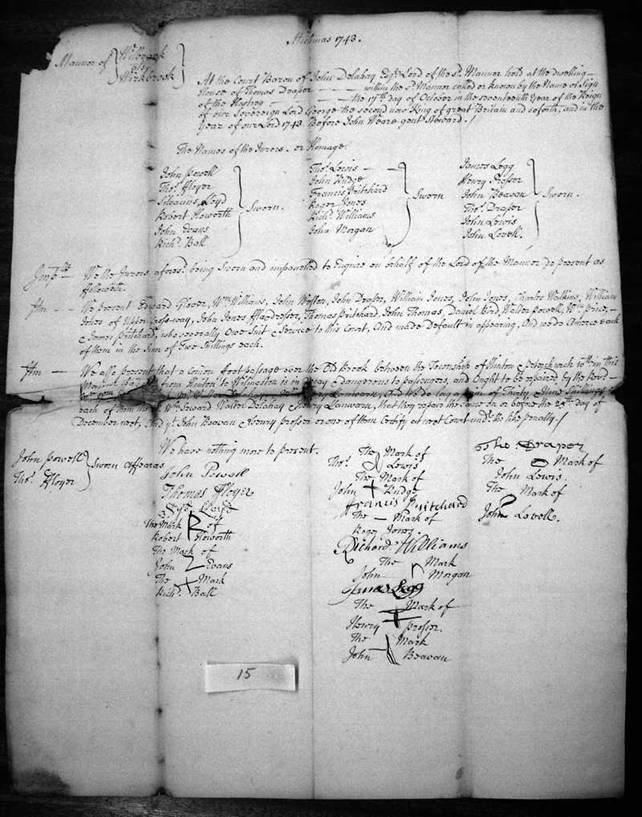 Michmas 1743.
Mannor of
Wilbrook
Wickbrook
At the Court Baron of John Delahay Esqr. Lord of the sd. Mannor held at the dwelling
House of Thomas Draper within the sd. Mannor called or known by the Name or Sign
of the the 17th. day of October in the seventeenth Year of the Reign
of our Sovereign Lord George the second now King of great Britain and soforth, and in the
Year of our Lord 1743. Before John Weare gent. Steward./
The Names of the Jurors or Homage.
John Powell
Tho: Floyer
Lloyd
Robert Howorth
John Evans
Richd. Ball
Sworn.
Tho: Lewis
John Rudge
Francis Pritchard
Roger Jones
Richd. Williams
John Morgan
Sworn
James Legg
Henry Prosser
John Beavan
Tho: Draper
John Lewis
John Lovell.
Sworn.
We the Jurors aforesd. being Sworn and impanelled to Enquire on behalf of the Lord of the Mannor do present as
followeth.
Itm We present Edward Glover, Wm. Williams, John Draper, William Jones, John Jones, Charles Watkins, William
Price of Upper Jones, Thomas Pritchard, John Thomas, Daniel Bird, Walter Powell, Wm. Price,
James Pritchard, who severally owe Suit & Service to this Court, And made Default in appearing, And we do Amerce each
of them in the Sum of Two Shillings each.
Itm We also present that a comon foot passage over the Old Brook between the Township of Hinton & Peterchurch in this
Mannor from Hinton to is in decay & dangerous to passengers, and Ought to be repaired by the
each of them the Walter Delahay & Henry that they repair the same on or before the day of
December next, And yt. John Beavan & Henry prosser or one of them Certify at next Court undr. the like penalty./
We have nothing more to present.
John Powell
Tho: Floyer
Sworn Affearas
John Powell
Thomas Floyer
Lloyd
the Mark R of
Robert Howorth
The Mark of
John Evans
The Mark
Richd. Ball
The Mark of
Tho: Lewis
The Mark of
John Rudge
Francis Pritchard
The Mark of
Roger Jones
Richard Williams
The Mark
John Morgan
James Legg
The Mark of
Henry Prosser.
The Mark
John Beavan
Tho Draper
The Mark of
John Lewis.
The Mark of
John Lovell.
15